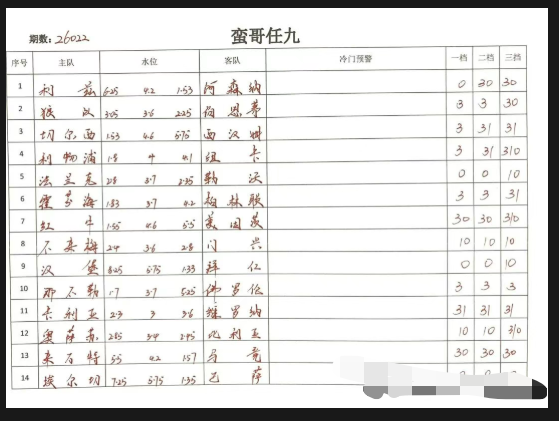 期数: 26022
蛮哥任九
序号 主队 水位 客队 冷门预警 一档 二档 三档
1 利兹 6.25 4.2 1.53 阿森纳 0 30 30
2 狼队 3.05 3.6 2.25 伯恩茅 3 3 30
3 切尔西 1.53 4.6 5.75 西汉姆 3 31 31
4 利物浦 1.8 4 4.1 纽卡 3 31 310
5 法兰克 2.8 3.7 2.35 勒沃 0 0 10
6 霍芬海 1.83 3.7 4.2 柏林联 3 3 31
7 红牛 1.55 4.6 5.5 美因茨 30 30 310
8 不莱梅 2.4 3.6 2.8 门兴 10 10 10
9 汉堡 8.25 5.75 1.33 拜仁 0 0 10
10 那不勒 1.7 3.7 5.25 佛罗伦 3 3 3
11 卡利亚 2.3 3 3.6 维罗纳 31 31 31
12 奥萨苏 2.85 3.4 2.45 比利亚 10 10 310
13 莱万特 5.5 4.2 1.57 马竞 30 30 30
14 埃尔切 7.25 5.75 1.35 巴萨